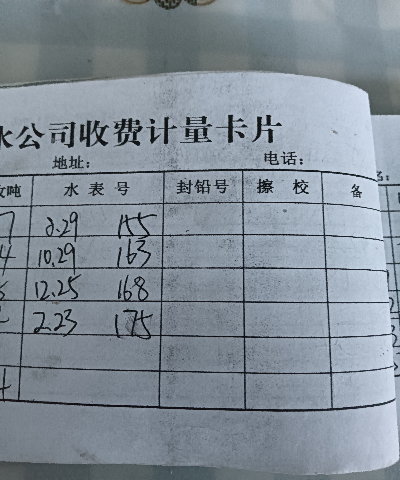 水公司收费计量卡片
地址: 电话:
吨 水表号 封铅号 擦校 备
7 8.29 155
4 10.29 163
12.25 168
2.23 175
4